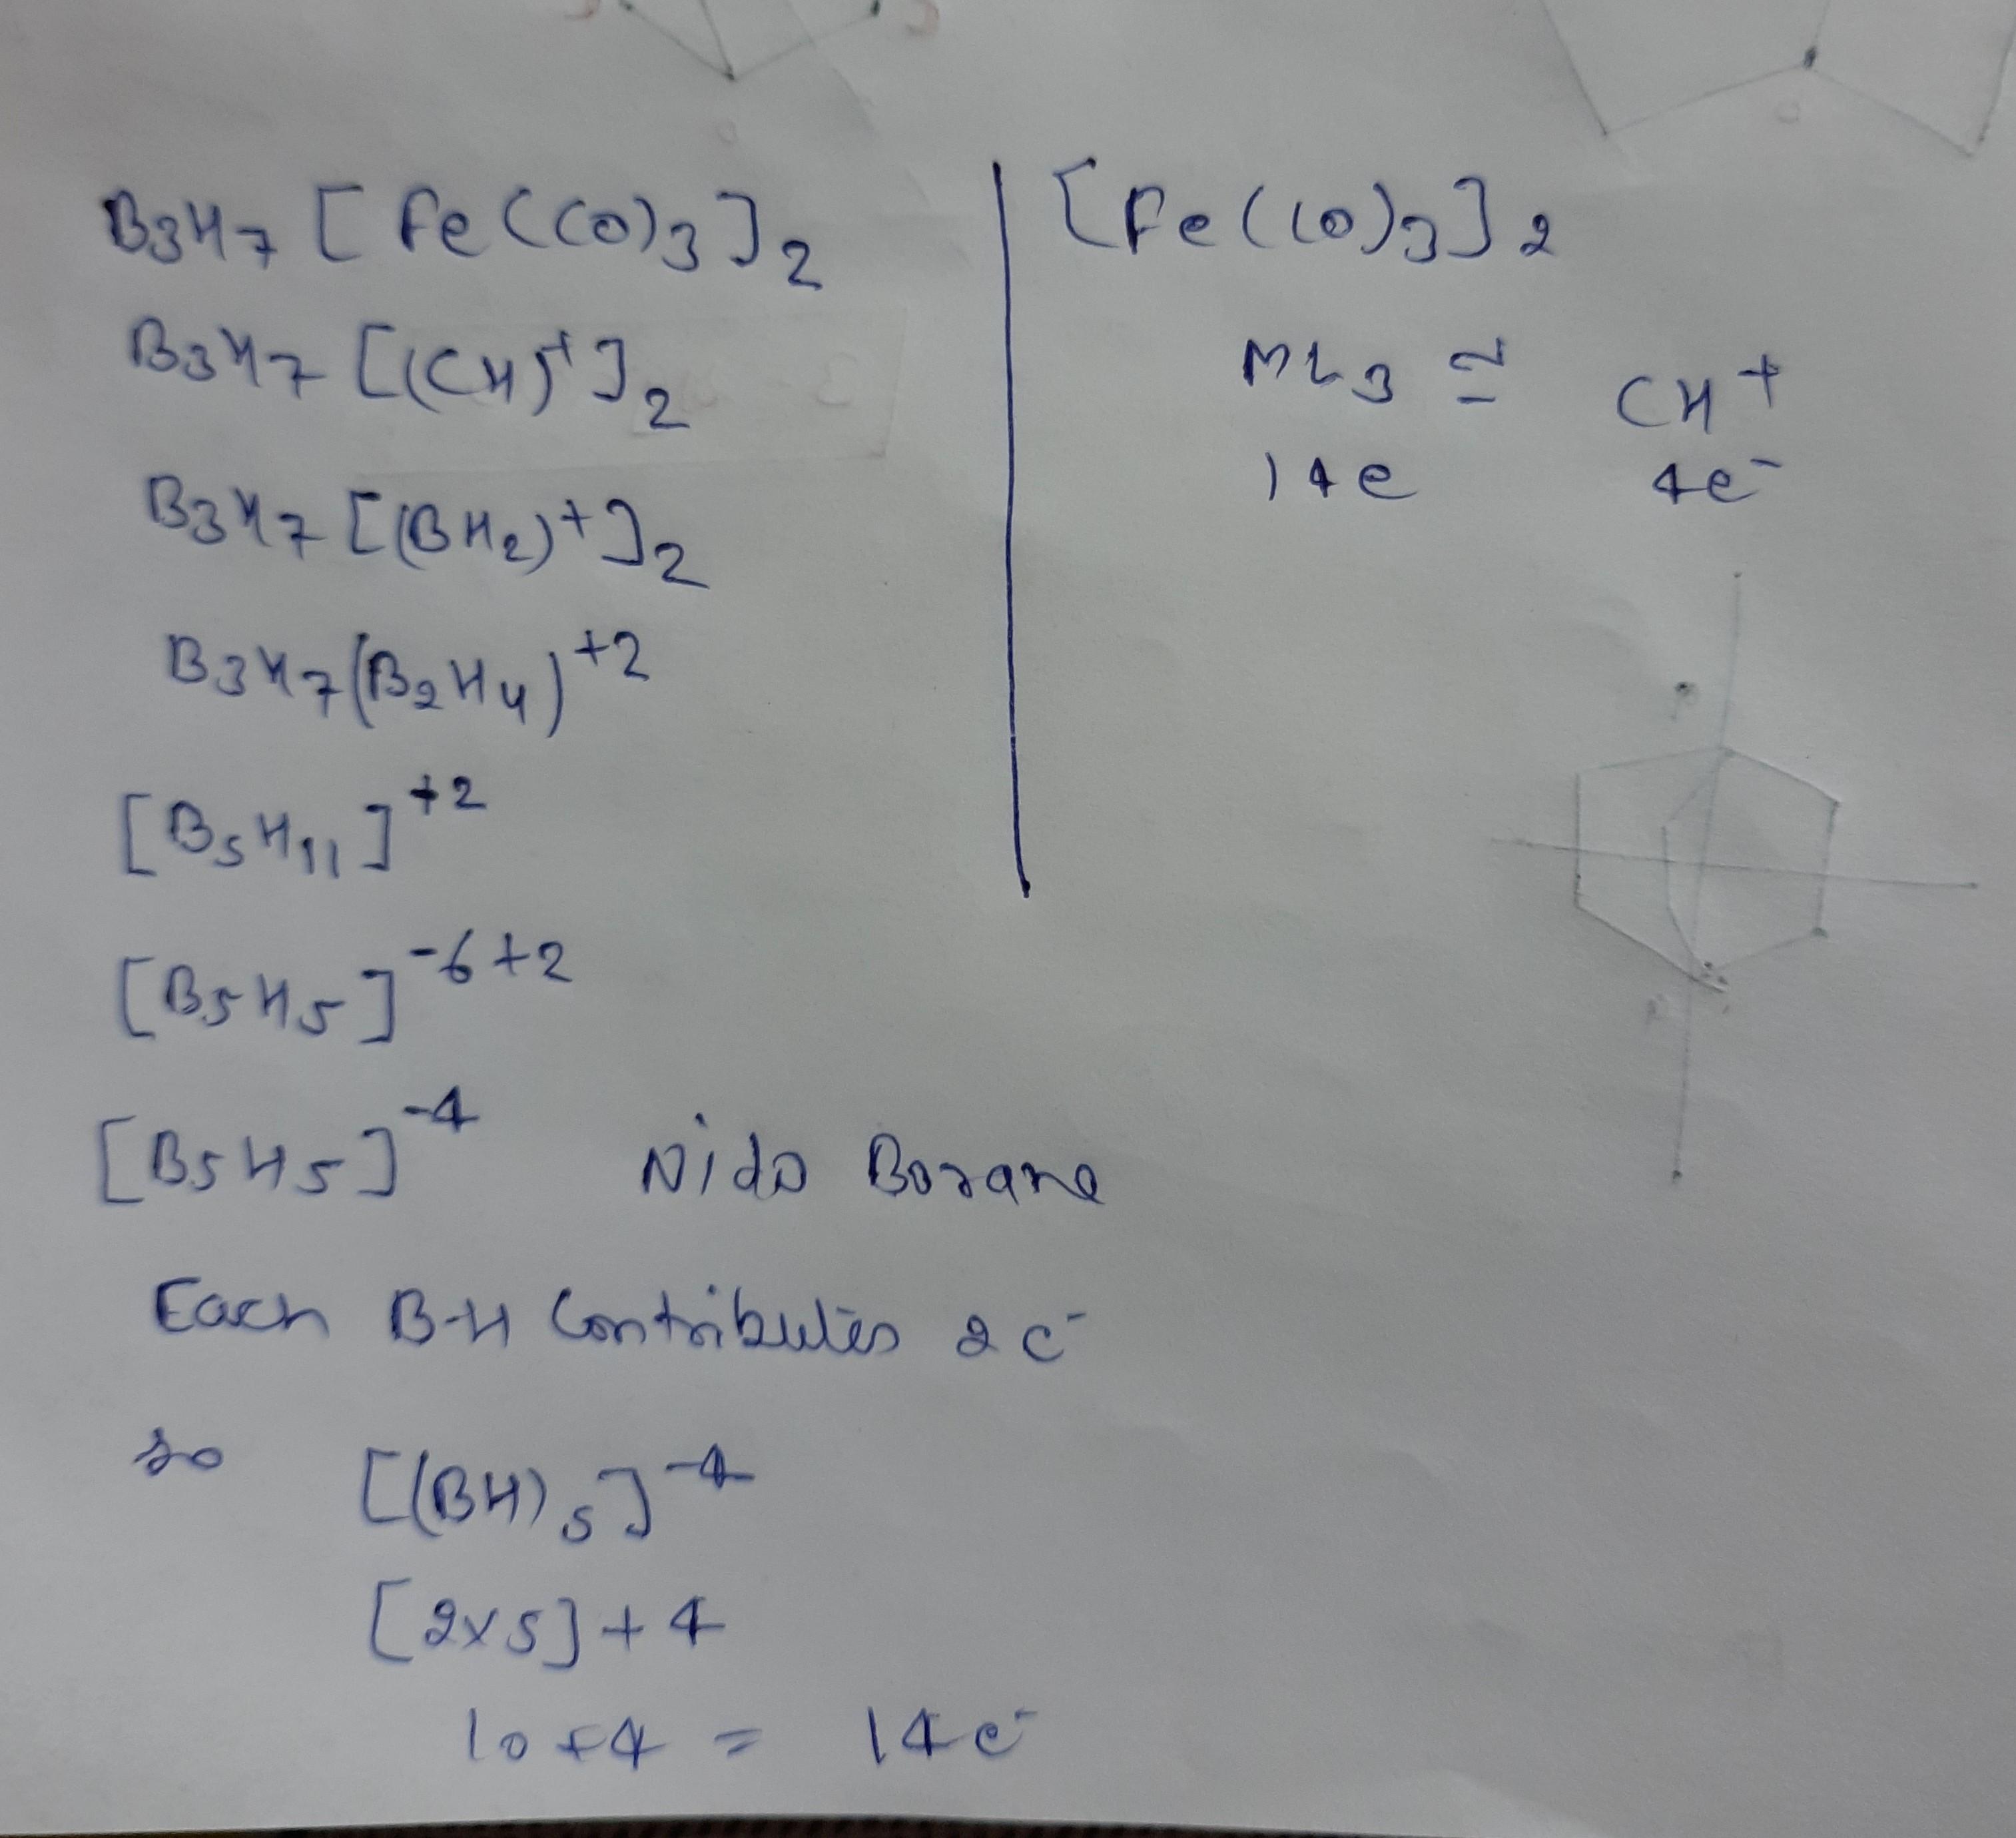 B3H7 [Fe(CO)3]2
B3H7 [(CH)+]2
B3H7 [(BH2)+]2
B3H7(B2H4)+2
[B5H11]+2
[B5H5]-6+2
[B5H5]-4 Nido Borane
Each B-H Contributes 2e-
so [(BH)5]-4
[2x5]+4
10+4 = 14e-
[Fe(CO)3]2
ML3 ≅ CH+
14e 4e-